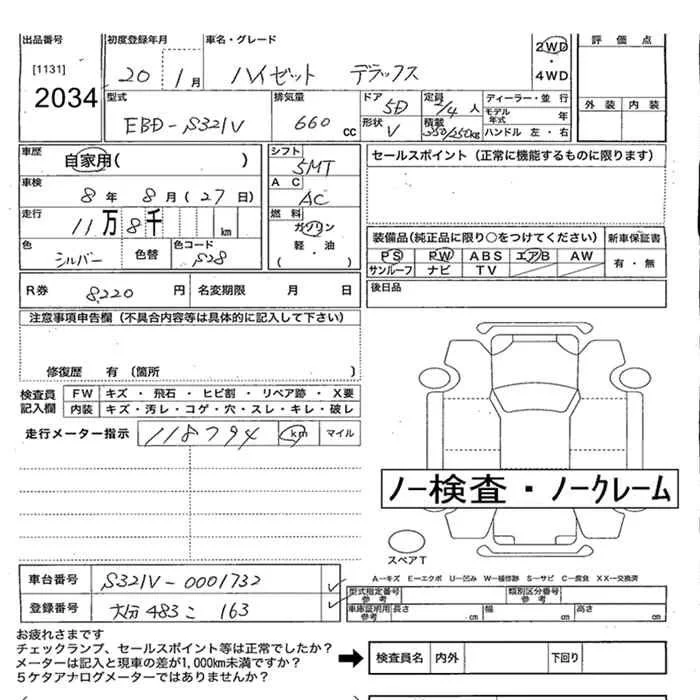 出品番号 初度登録年月 車名・グレード 2WD・4WD 評価点
[1131] 2034 20 1月 ハイゼット デラックス
外装 内装
型式 EBD-S321V 排気量 660 cc ドア 5D 形状 V 定員 2/4 人 積載 350/250kg ディーラー・並行 モデル年式 年 ハンドル 左・右
車歴 自家用( ) シフト 5MT セールスポイント(正常に機能するものに限ります)
車検 8年 8月(27日) AC AC
走行 11万8千 km 燃料 ガソリン 軽・油 ( )
色 シルバー 色替 色コード S28
装備品(純正品に限り○をつけてください) 新車保証書
PS PW ABS エアB AW 有・無
サンルーフ ナビ TV
R券 8,220 円 名変期限 月 日 後日品
注意事項申告欄(不具合内容等は具体的に記入して下さい)
修復歴 有(箇所 )
検査員記入欄 FW キズ・飛石・ヒビ割・リペア跡・X要
内装 キズ・汚レ・コゲ・穴・スレ・キレ・破レ
走行メーター指示 118794 km マイル
ノー検査・ノークレーム
スペアT
A―キズ E―エクボ U―凹み W―補修跡 S―サビ C―腐食 XX―交換済
車台番号 S321V-0001732 型式指定番号 参考 類別区分番号 参考
登録番号 大分 483 こ 163 車庫証明用 参考 長さ cm 幅 cm 高さ cm
お疲れさまです
チェックランプ、セールスポイント等は正常でしたか?
メーターは記入と現車の差が1,000km未満ですか?
5ケタアナログメーターではありませんか?
検査員名 内外 下回り